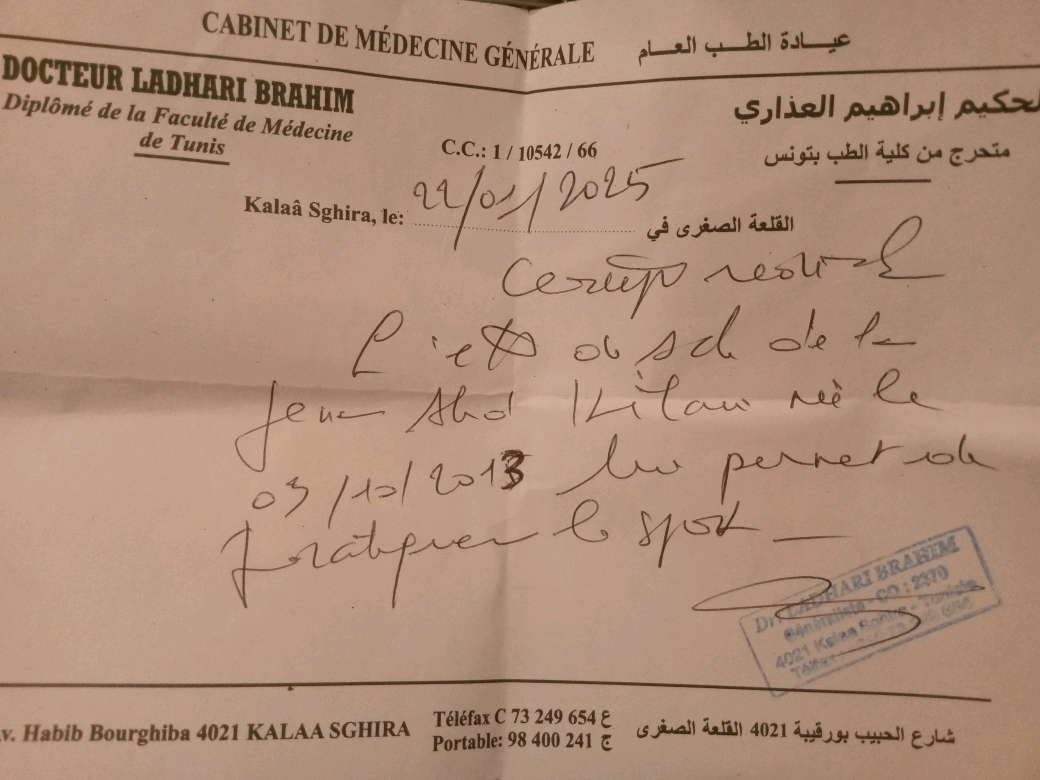 CABINET DE MÉDECINE GÉNÉRALE عيادة الطب العام
DOCTEUR LADHARI BRAHIM
Diplômé de la Faculté de Médecine
de Tunis
لحكيم إبراهيم العذاري
متحرج من كلية الطب بتونس
C.C.: 1 / 10542 / 66
Kalaâ Sghira, le: 22/01/2025 القلعة الصغرى في
L'état de de la
jeune né le
03/10/2013 lui permet de
pratiquer le sport
Dr. LADHARI BRAHIM
Généraliste - CO : 2370
4021 Kalaa Sghira - Tunisie
v. Habib Bourghiba 4021 KALAA SGHIRA
Téléfax C 73 249 654 ع
Portable: 98 400 241 ج
شارع الحبيب بورقيبة 4021 القلعة الصغرى